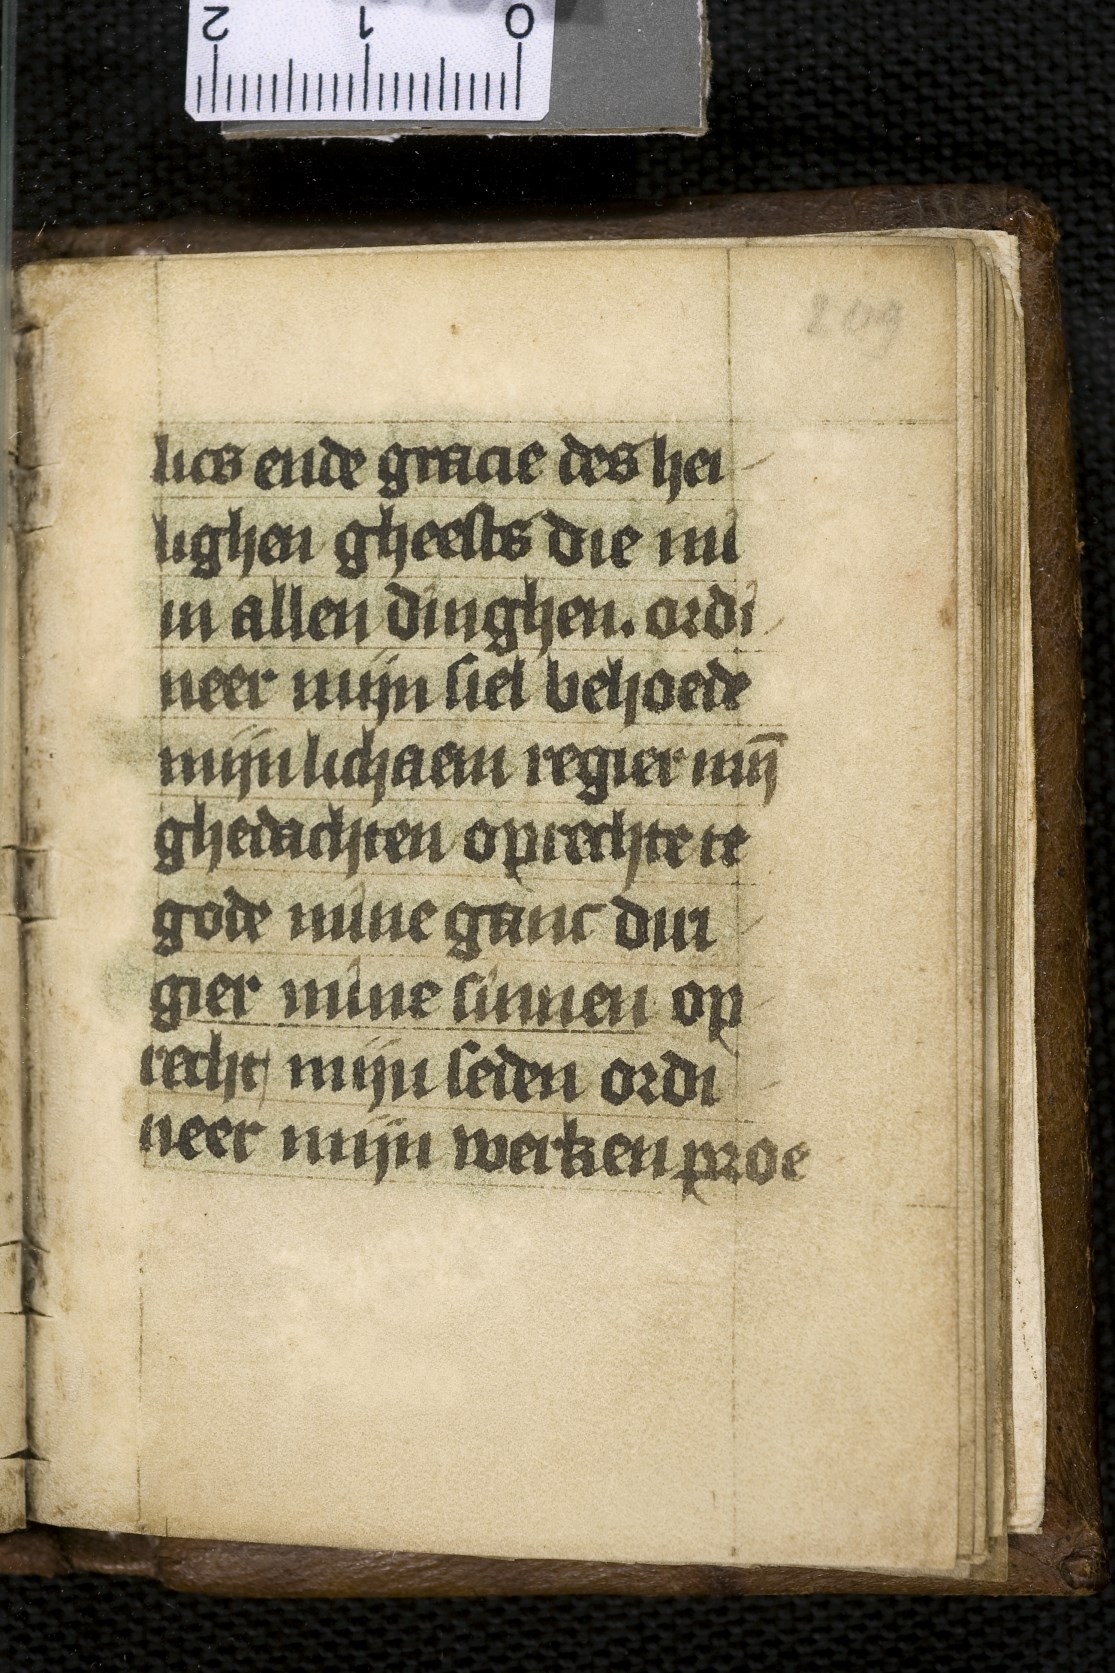 2 1 0
209
lics ende gracie des hei
lighen gheests die mi
in allen dinghen. ordi
neer mijn siel behoede
mijn lichaem regier mij̄
ghedachten oprechte te
gode mine ganc dwi
gier mine sinnen op
recht mijn seden ordi
neer mijn werken proe